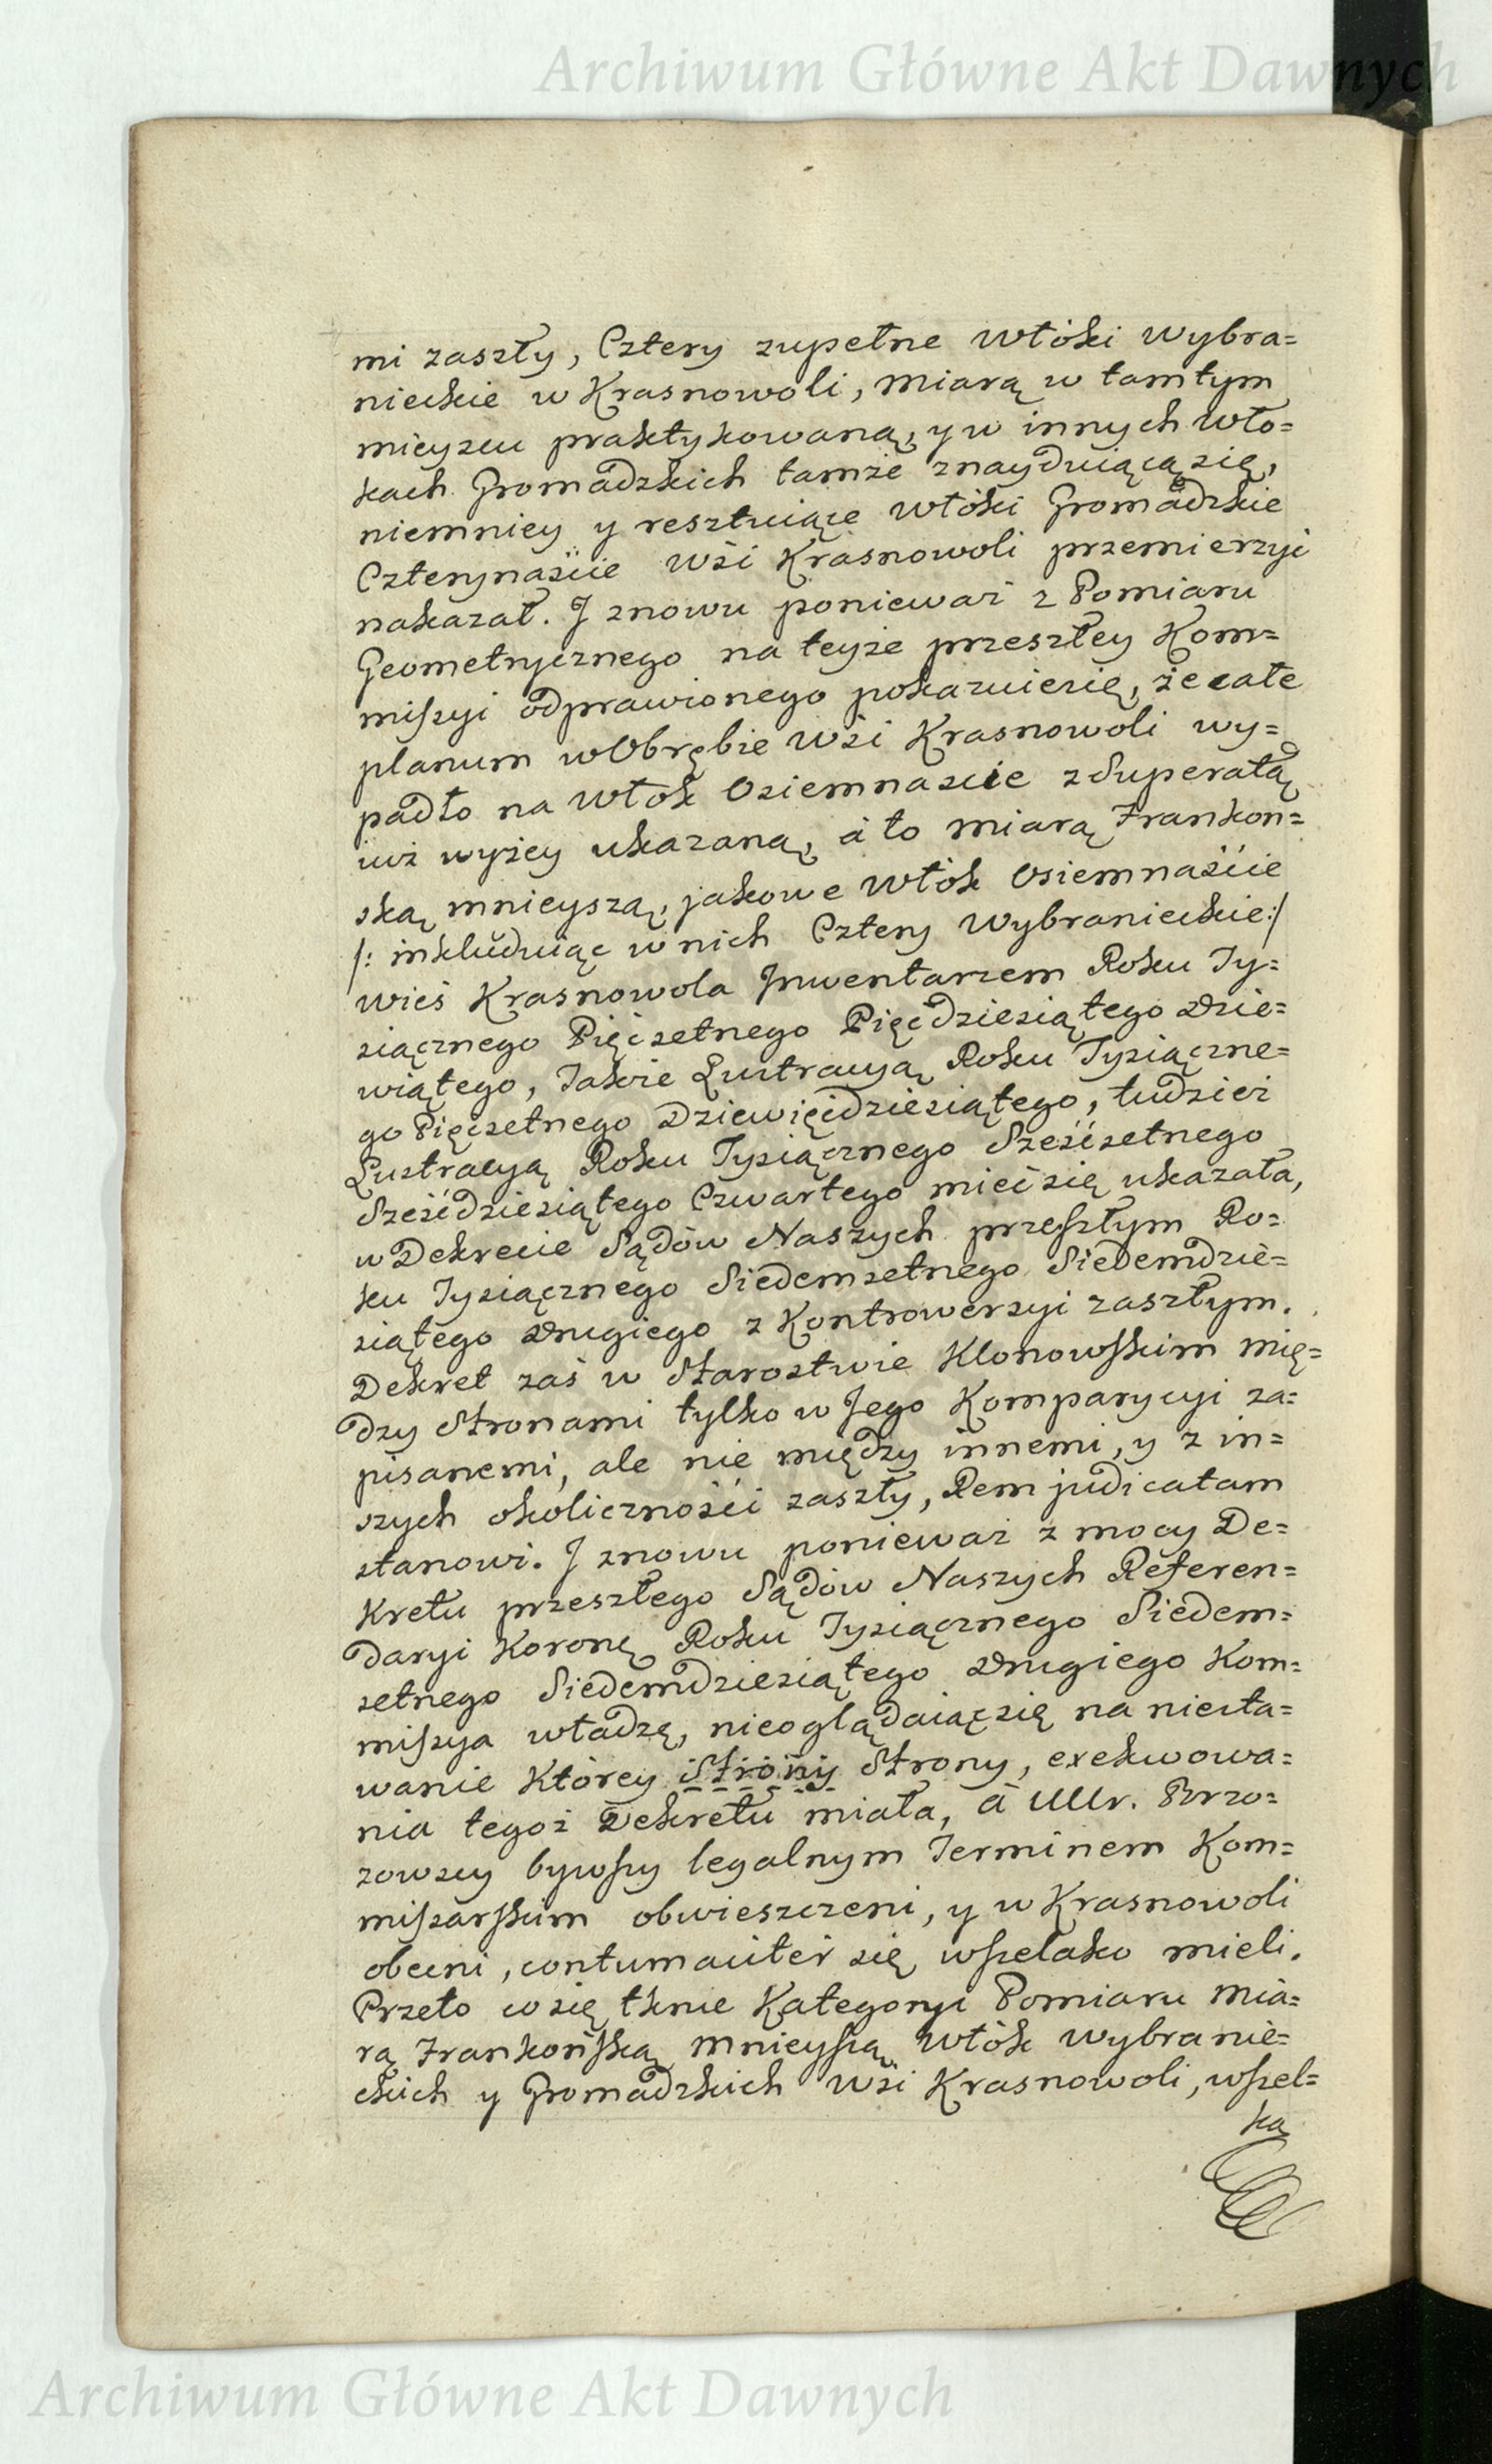 Archiwum Główne Akt Dawnych
mi zaszły, Cztery zupełne Włóki Wybra=
nieckie w Krasnowoli, miarą w tamtym
mieyscu praktykowaną, y w innych Wło=
kach Gromadzkich tamże znayduiącą się,
niemniey y resztuiące Włóki Gromadzkie
Czterynaście Wśi Krasnowoli przemierzyć
nakazał. J znowu ponieważ z Pomiaru
Geometrycznego na teyże przeszłey Kom=
mißyi odprawionego pokazuiesię, że całe
planum wObrębie Wśi Krasnowoli wy=
padło na Włok Osiemnascie z Superatą
iuż wyżey ukazaną, à to miarą Frankon=
ską mnieyszą, jakowe Włók Osiemnaście
/: inkluduiąc w nich Cztery Wybranieckie:/
wieś Krasnowola Jnwentarzem Roku Ty=
siącznego Pięćsetnego Pięćdziesiątego Dzie=
wiątego, Także Lustracyą Roku Tysiączne=
go Pięćsetnego Dziewięćdziesiątego, tudzież
Lustracyą Roku Tysiącznego Sześćsetnego
Sześćdziesiątego Czwartego mieć się ukazała,
w Dekrecie Sądów Naszych przeszłym Ro=
ku Tysiącznego Siedemsetnego Siedemdzie=
siątego Drugiego z Kontrowersyi zaszłym.
Dekret zaś w Starostwie Klonowskim mię=
dzy Stronami tylko w Jego Komparycyi za=
pisanemi, ale nie między innemi, y z in=
szych okoliczności zaszły, Rem judicatam
stanowi. J znowu ponieważ z mocy De=
kretu przeszłego Sądów Naszych Referen=
daryi Koronę Roku Tysiącznego Siedem=
setnego Siedemdziesiątego Drugiego Kom=
mißya władzę, nieoglądaiąc się na niesta=
wanie Którey Strony Strony, exekwowa=
nia tegoż Dekretu miała, à UUr. Brzo=
zowscy bywszy legalnym Terminem Kom=
mißarskim obwieszczeni, y w Krasnowoli
obecni, contumaciter się wszelako mieli.
Przeto co się tknie Kategoryi Pomiaru Mia=
rą Frankońską Mnieyszą Włók Wybranie=
ckich y Gromadzkich Wśi Krasnowoli, wszel=
ka
Archiwum Główne Akt Dawnych